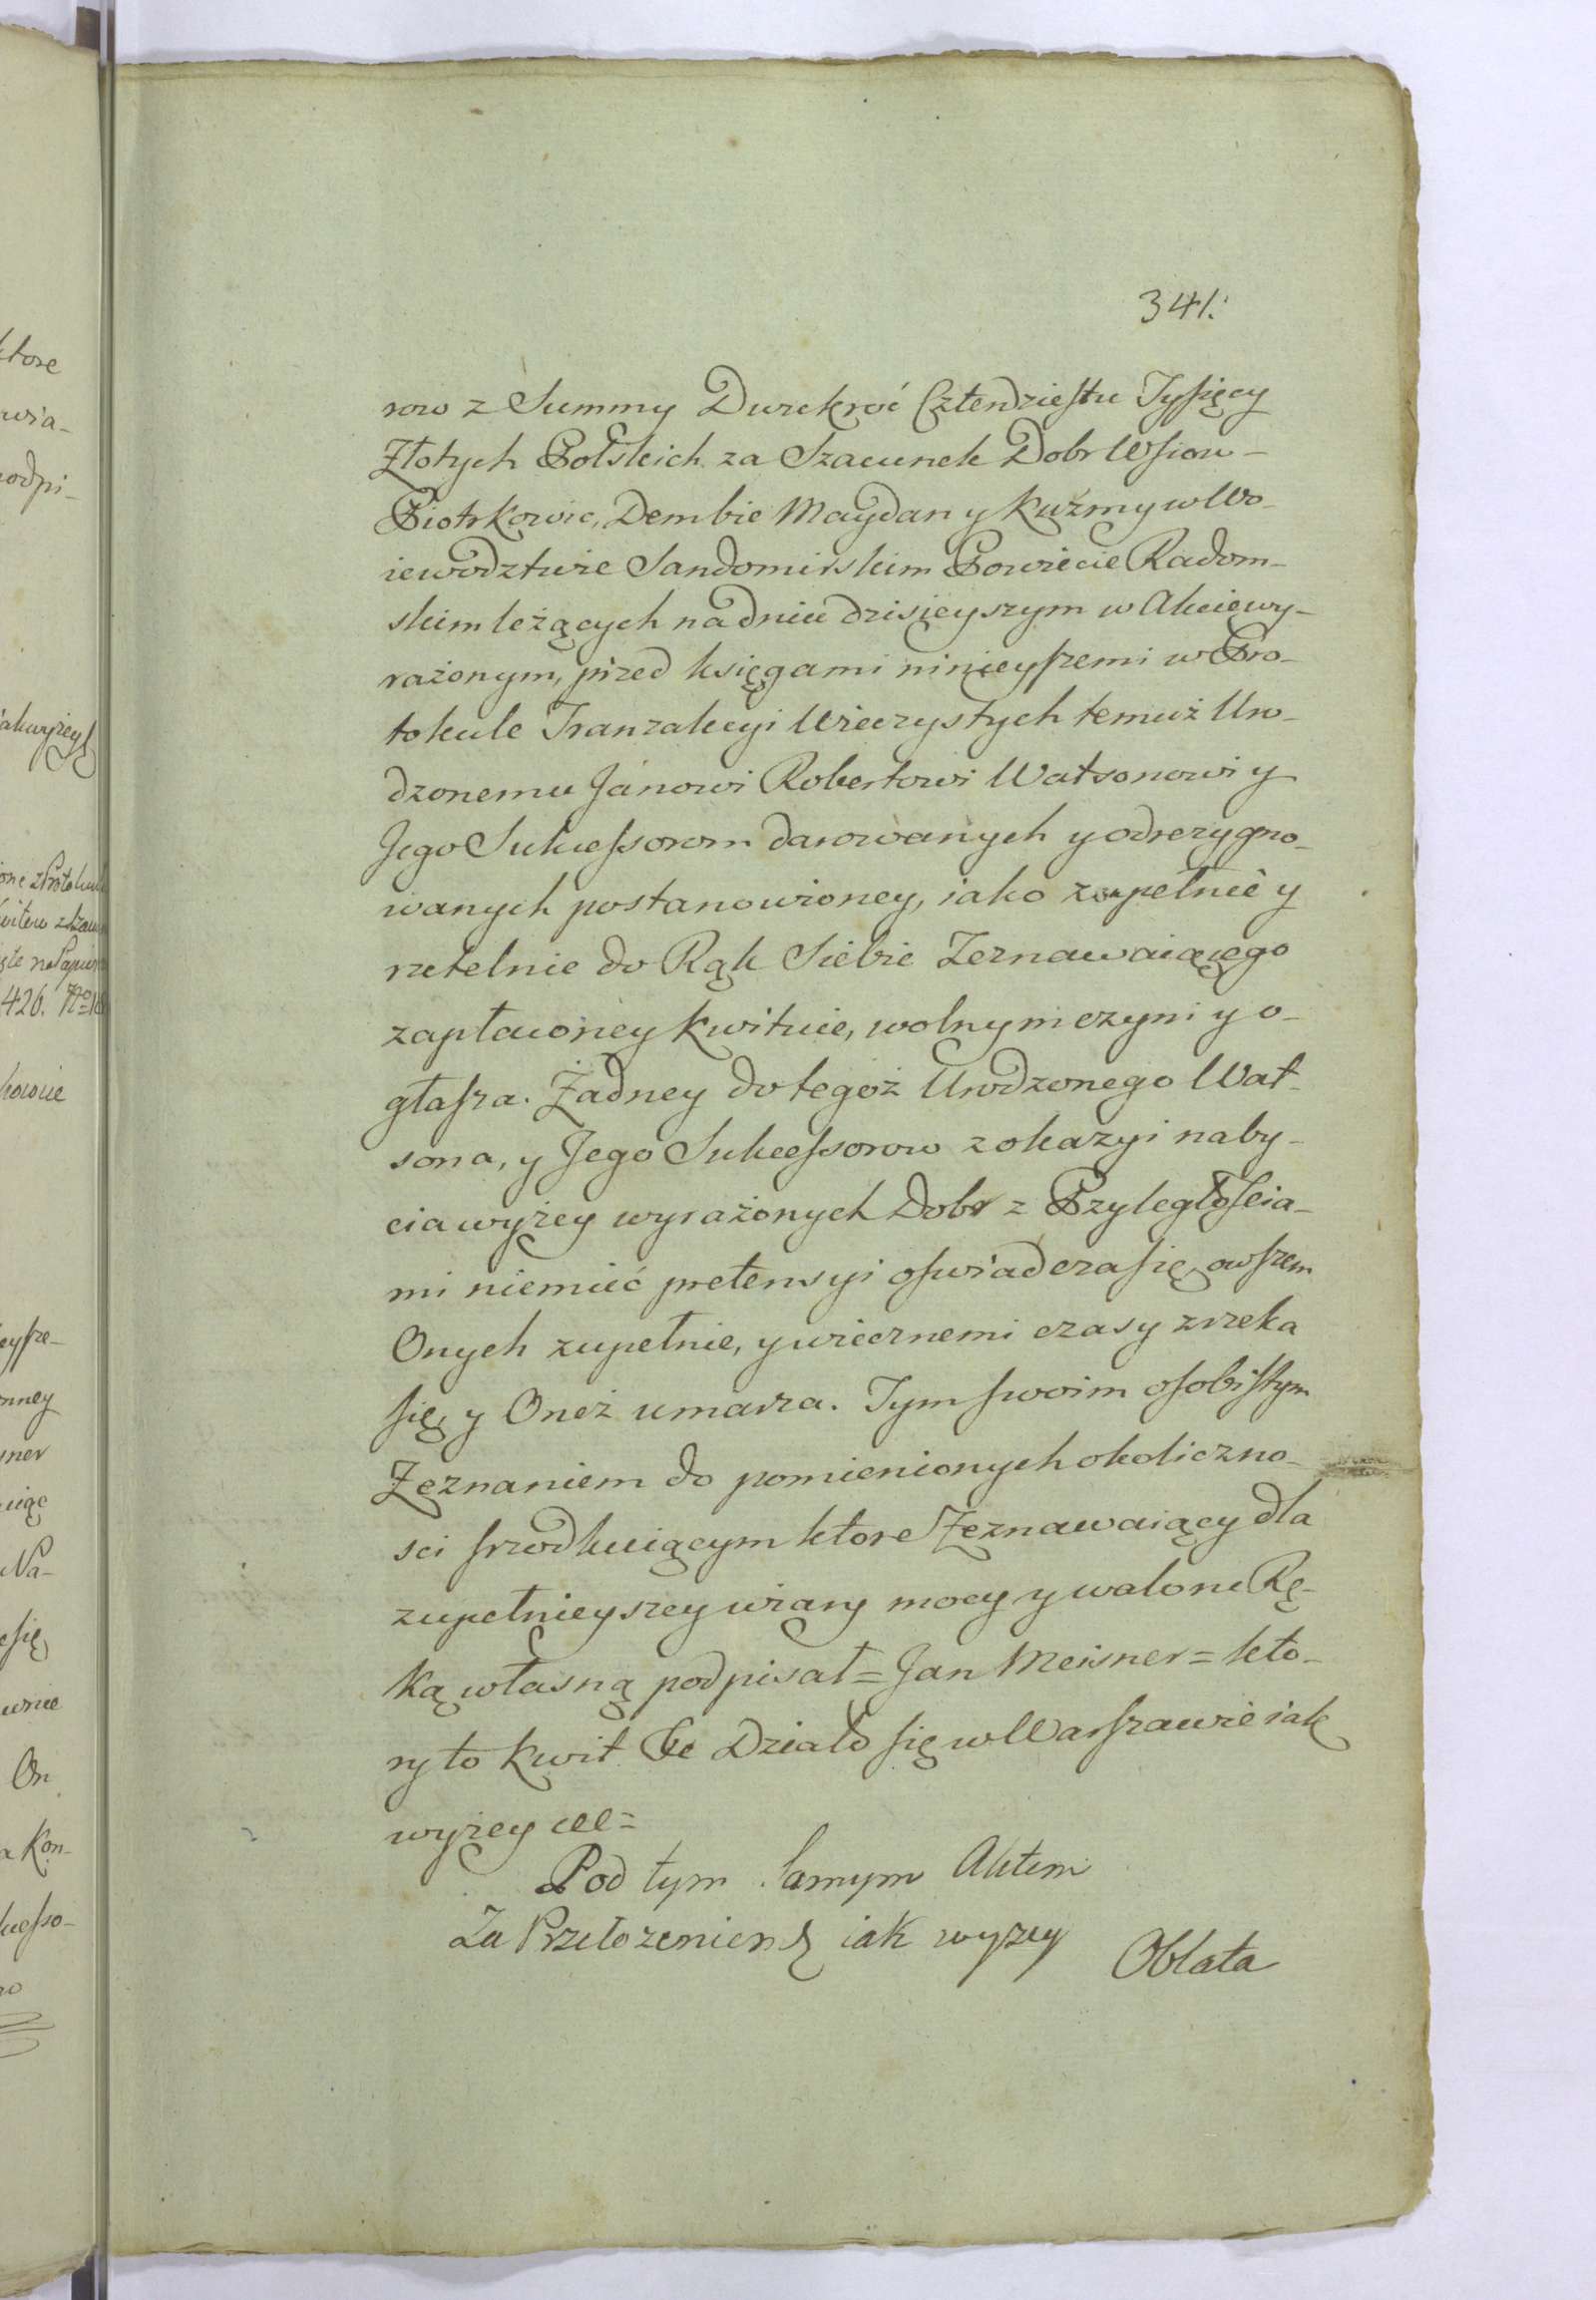 341.
row z Summy Dwiekroć Cztendziestu Tysięcy
Złotych Polskich za Szacunek Dobr Wsiow-
Piotrkowic, Dembie Maydan y Kuźmy w Wo-
iewodztwie Sandomirskim Powiecie Radom-
skim leżących na dniu dzisieyszym w Akcie wy-
rażonym, przed księgami ninieyszemi w Pro-
tokule Tranzakcyi Wieczystych temuż Uro-
dzonemu Janowi Robertowi Watsonowi y
Jego Sukcessorom darowanych y odrezygno-
wanych postanowioney, iako zupełnie y
rzetelnie do Rąk Siebie Zeznawaiącego
zapłaconey kwituie, wolnym czyni y o-
głasza. Żadney do tegoż Urodzonego Wat-
sona, y Jego Sukcessorow z okazyi naby-
cia wyżey wyrażonych Dobr z Przyległościa-
mi niemieć pretensyi oswiadcza się, owszem
Onych zupełnie, y wiecznemi czasy zrzeka
się, y Oneż umarza. Tym swoim osobistym
Zeznaniem do pomienionych okoliczno-
sci srzodkuiącym ktore Zeznawaiący dla
zupełnieyszey wiary mocy y waloru Rę-
ką własną podpisał = Jan Meisner = kto-
ry to kwit &c Działo się w Warszawie iak
wyżey
Pod tym samym Aktem
Za Przełożeniem iak wyżey
Oblata
ktore
wia-
podpi-
426. No
On
a Kon-